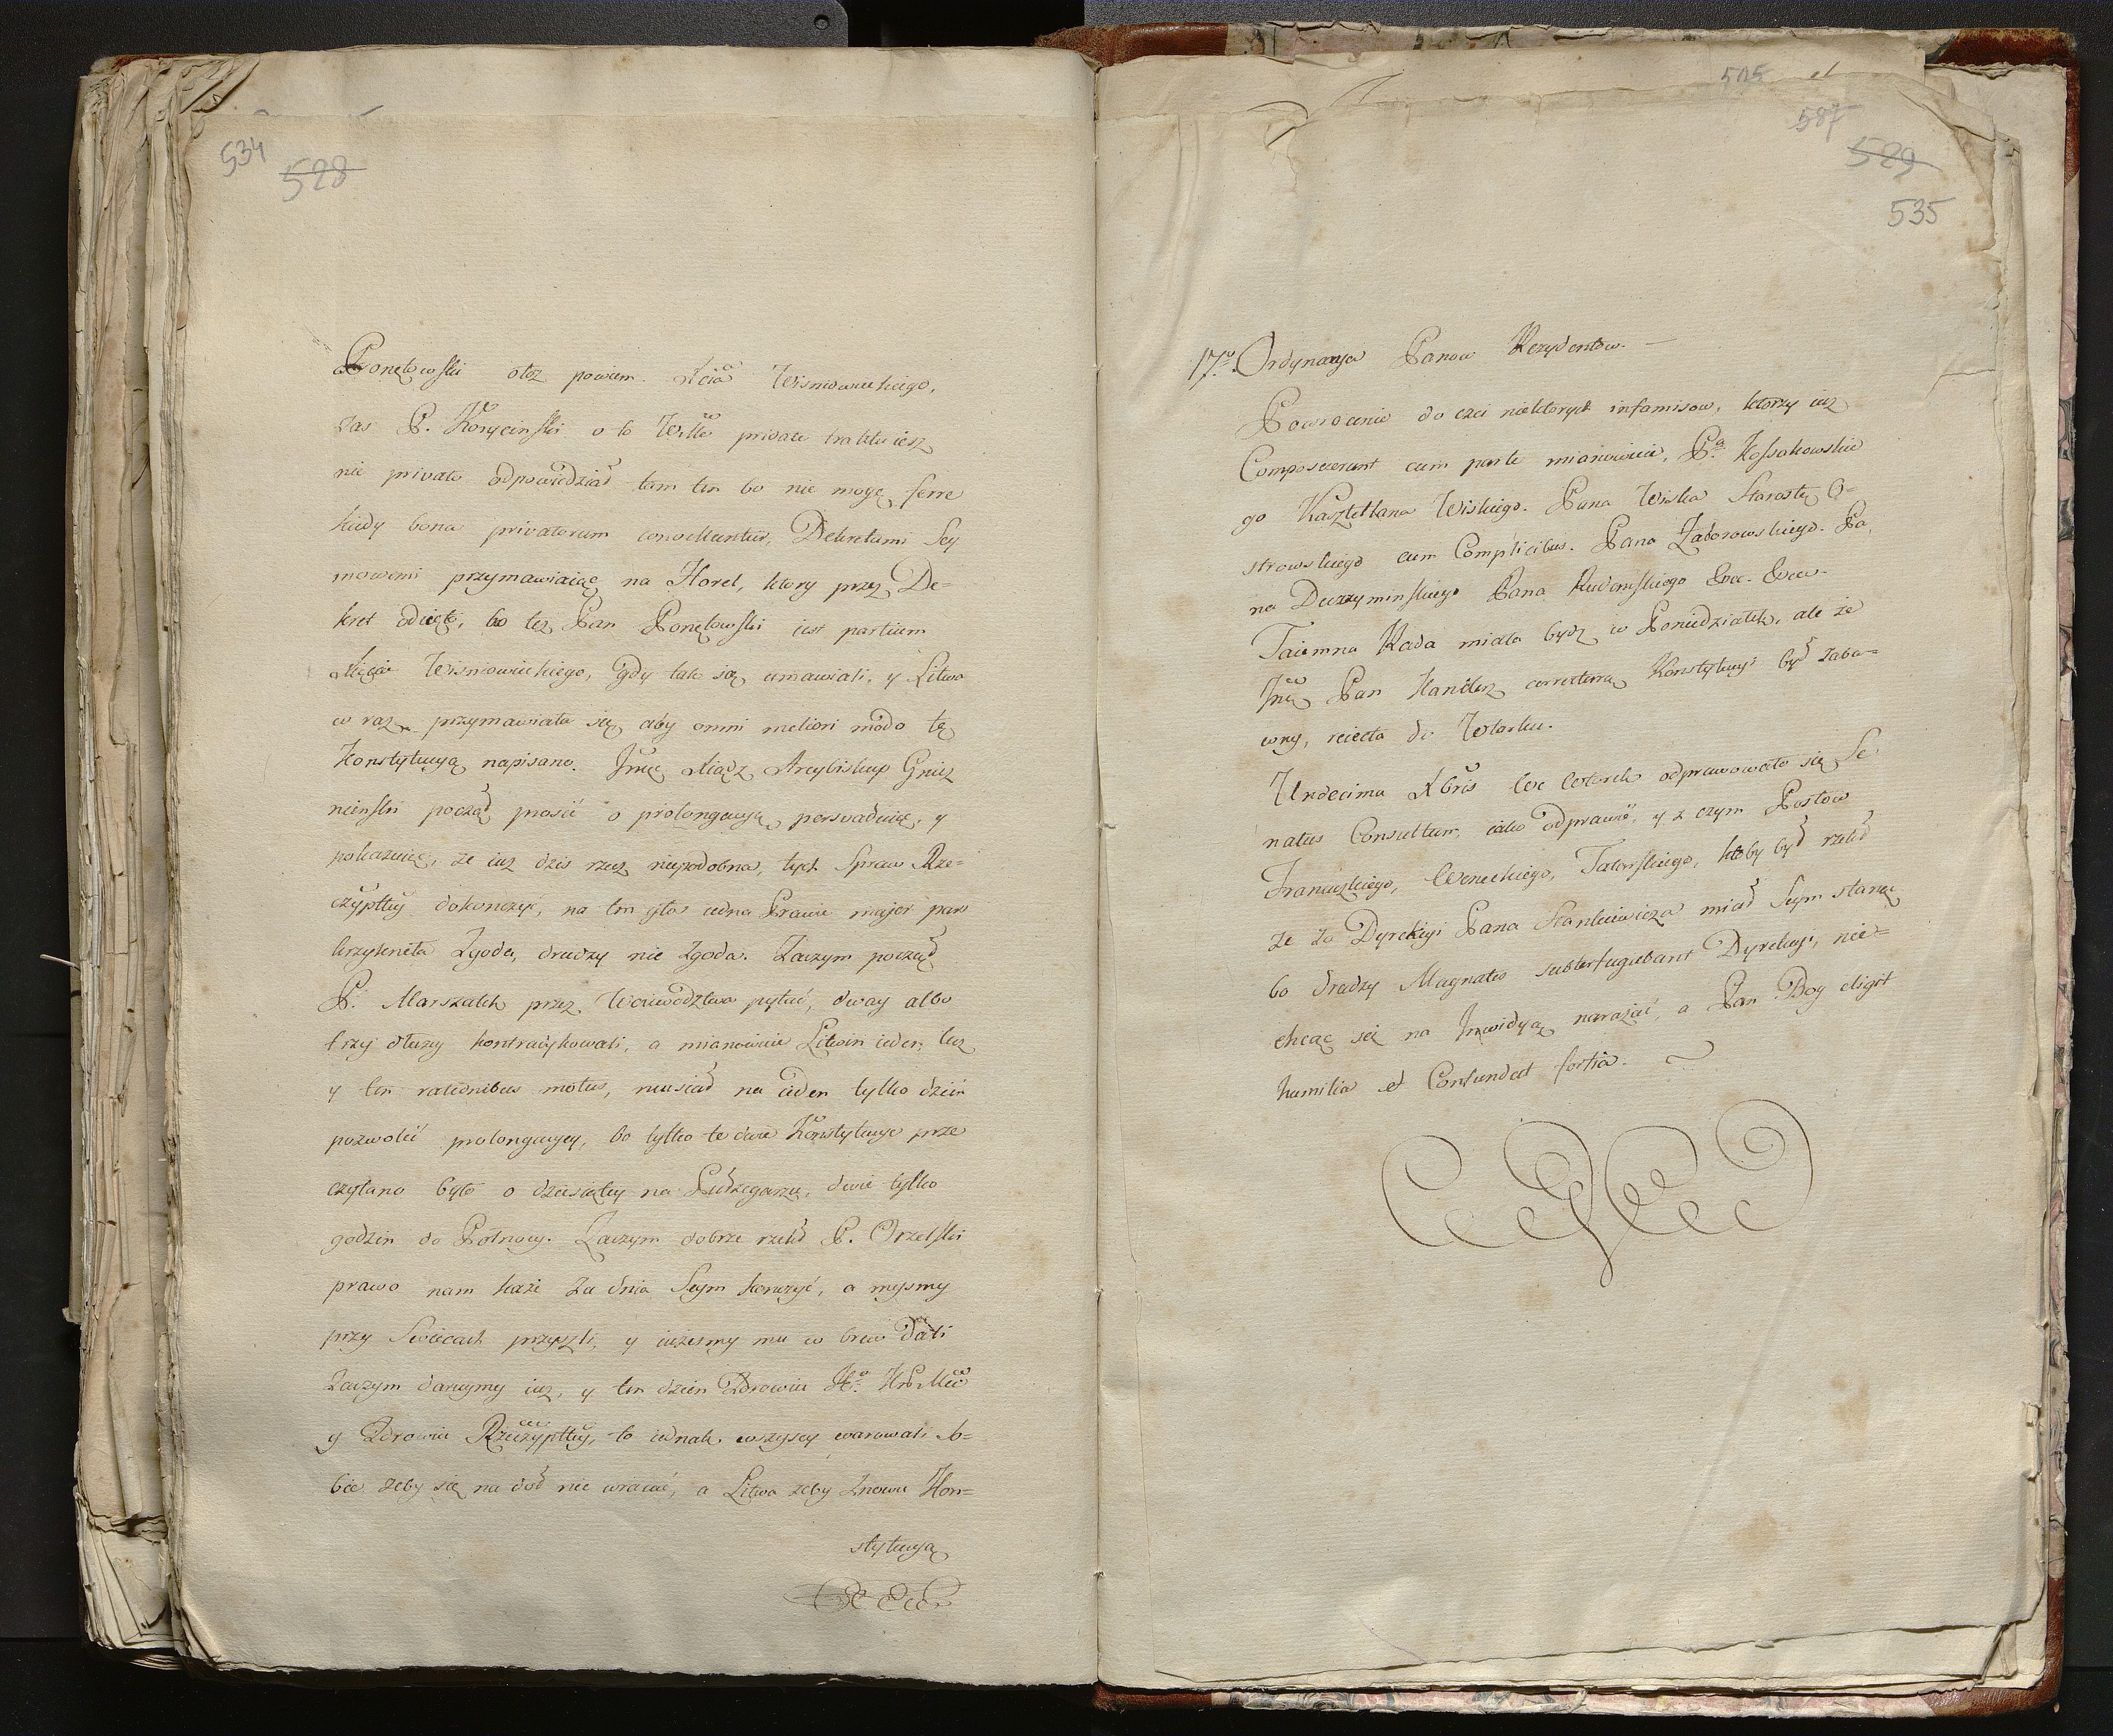 534
528
Ponętowski otoż powiem Xcia Wisniowieckiego,
Zas P. Korycinski o to Wtto private traktuiesz
nie privato odpowiedział tam ten bo nie mogę ferre
kiedy bona privatorum convelluntur, Dekretami Sey
mowemi przymawiaiąc na Horol, ktory przez De=
kret odięto, bo też Pan Ponętowski iest partium
Xięcia Wisniowieckiego, gdy tak się umawiali, y Litwa
w raz przymawiała się aby omni meliori modo tę
Konstytucyą napisano. Jmć Xiądz Arcybiskup Gniez
nienski począł prosić o prolongacyą persvaduiąc, y
pokazuiąc, że iuż dzis rzecz niepodobna, tych Spraw Rze=
czyptty dokonczyć, na ten głos iedna Prawie major pars
krzyknęła Zgoda, drudzy nie Zgoda. Zaczym począł
P. Marszałek przez Woiewodztwa pytać, dway albo
trzy dłuzy kontradykowali, a mianowicie Litwin ieden, lecz
y ten rationibus motus, musiał na ieden tylko dzień
pozwolić prolongacyey, bo tylko te dwie Konstytucye prze
czytano było o dziesiątey na Pułzegarzu, dwie tylko
godzin do Połnocy. Zaczym dobrze rzekł P. Orzelski
prawo nam każe za dnia Seym konczyć, a mysmy
przy Swiecach przyszli, y iużesmy mu w brew dali
Zaczym daruymy iuż, y ten dzien Zdrowiu JKo KMci
y Zdrowiu Rzeczyptty, to iednak wszyscy warowali so=
bie żeby się na doł nie wracać, a Litwa żeby znowu Kon=
stytucyą
505
587
529
535
17o Ordynacya Panow Rezydentow. —
Powrocenie do czci niektorych infamisow, ktorzy iuż
Composuerunt cum parte mianowicie, Pa Kossakowskie
go Kasztellana Wiskiego. Pana Wiska Starostę O=
strowskiego cum Complicibus. Pana Zaborowskiego. Pa,
na Duczyminskiego Pana Rudomskiego Etce. Etce.
Taiemna Rada miała bydź w Poniedziałek, ale że
Jmć Pan Kanclerz correcturą Konstytucyi był zaba=
wny, reiecta do Wtorku.
Undecima Xbris We Wtorek odprawowało się Se
natus Consultum, iako odprawić, y z czym Posłow
Francuzkiego, Weneckiego, Tatarskiego, ktoby był rzekł
że za Dyrekcyi Pana Stankiewicza miał Seym stanąć
bo drudzy Magnates subterfugiebant Dyrekcyi, nie=
chcąc się na Inwidyą narażać, a Pan Bog eligit
humilia et Confundat fortia.